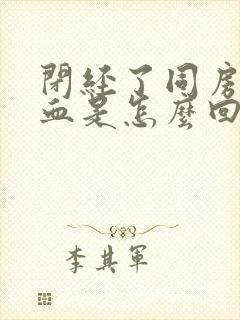 閉經了同房
血是怎麼回
李其軍